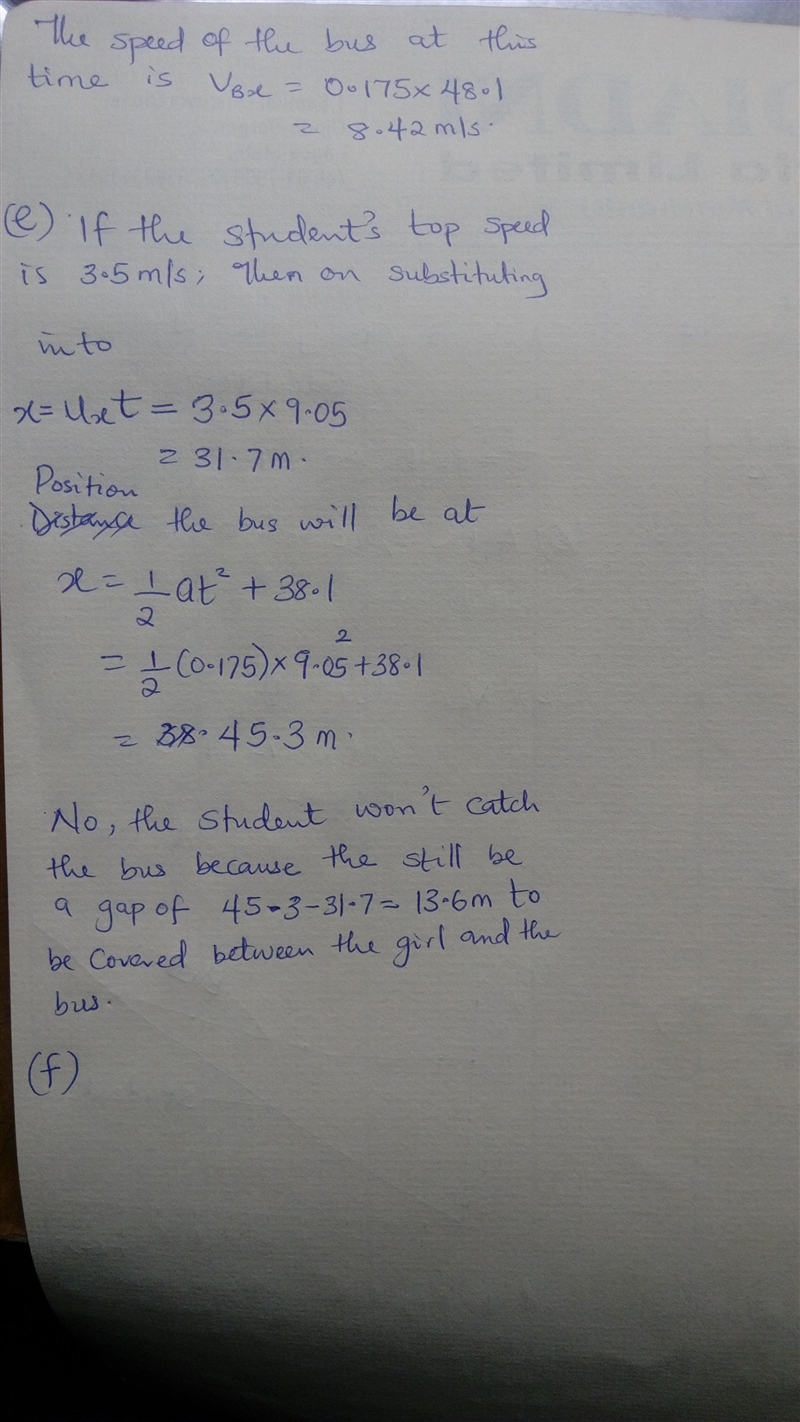 The speed of the bus at this
time is VBx = 0.175 x 48.1
= 8.42 m/s.
(e) If the student's top speed
is 3.5 m/s; then on substituting
into
x = Uxt = 3.5 x 9.05
= 31.7 m.
Position
Distance the bus will be at
x = 1/2 at² + 38.1
= 1/2 (0.175) x 9.05² + 38.1
= 38. 45.3 m.
No, the student won't catch
the bus because the still be
a gap of 45.3 - 31.7 = 13.6m to
be covered between the girl and the
bus.
(f)